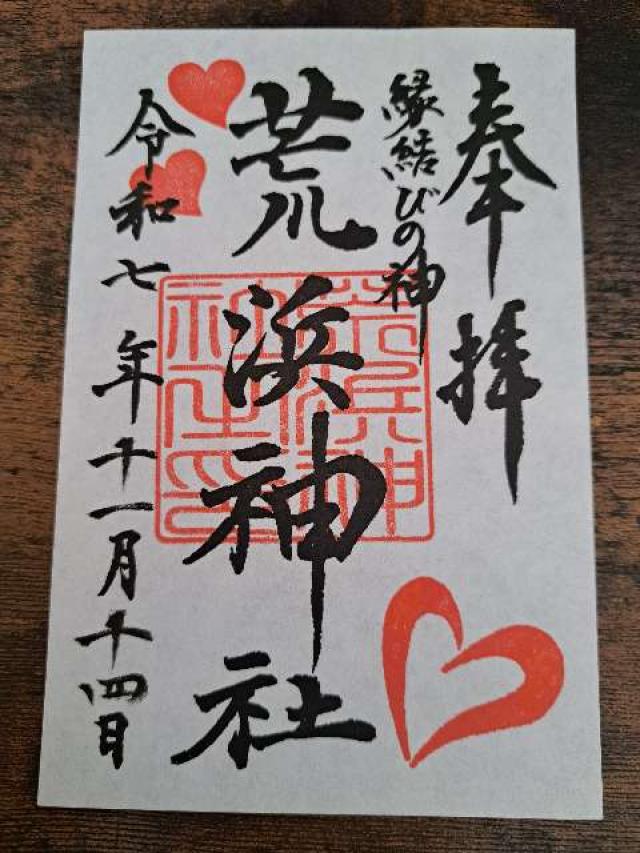 奉拝
縁結びの神
荒浜神社
令和七年十一月十四日